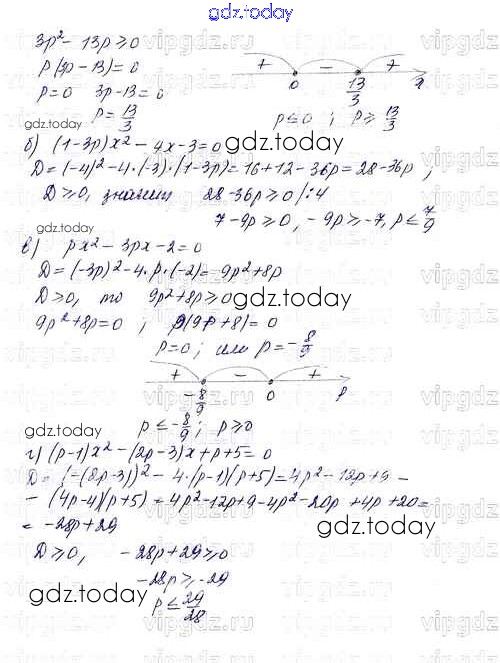 gdz.today
3p² - 13p ≥ 0
p(3p - 13) = 0
p = 0 3p - 13 = 0
p = 13/3
+ - +
0 13/3 x
p ≤ 0 ; p ≥ 13/3
gdz.today
б) (1-3p)x² - 4x - 3 = 0
gdz.today
D = (-4)² - 4·(-3)·(1-3p) = 16 + 12 - 36p = 28 - 36p ;
D ≥ 0, значит 28 - 36p ≥ 0 /:4
7 - 9p ≥ 0, -9p ≥ -7, p ≤ 7/9
gdz.today
в) px² - 3px - 2 = 0
D = (-3p)² - 4·p·(-2) = 9p² + 8p
D ≥ 0, то 9p² + 8p ≥ 0
gdz.today
9p² + 8p = 0 ; p(9p + 8) = 0
p = 0 ; или p = -8/9
+ - +
-8/9 0 p
p ≤ -8/9 ; p ≥ 0
gdz.today
г) (p-1)x² - (2p-3)x + p + 5 = 0
D = (-(2p-3))² - 4·(p-1)(p+5) = 4p² - 12p + 9 -
- (4p-4)(p+5) = 4p² - 12p + 9 - 4p² - 20p + 4p + 20 =
= -28p + 29
gdz.today
D ≥ 0, -28p + 29 ≥ 0
-28p ≥ -29
gdz.today
p ≤ 29/28
vipgdz.ru